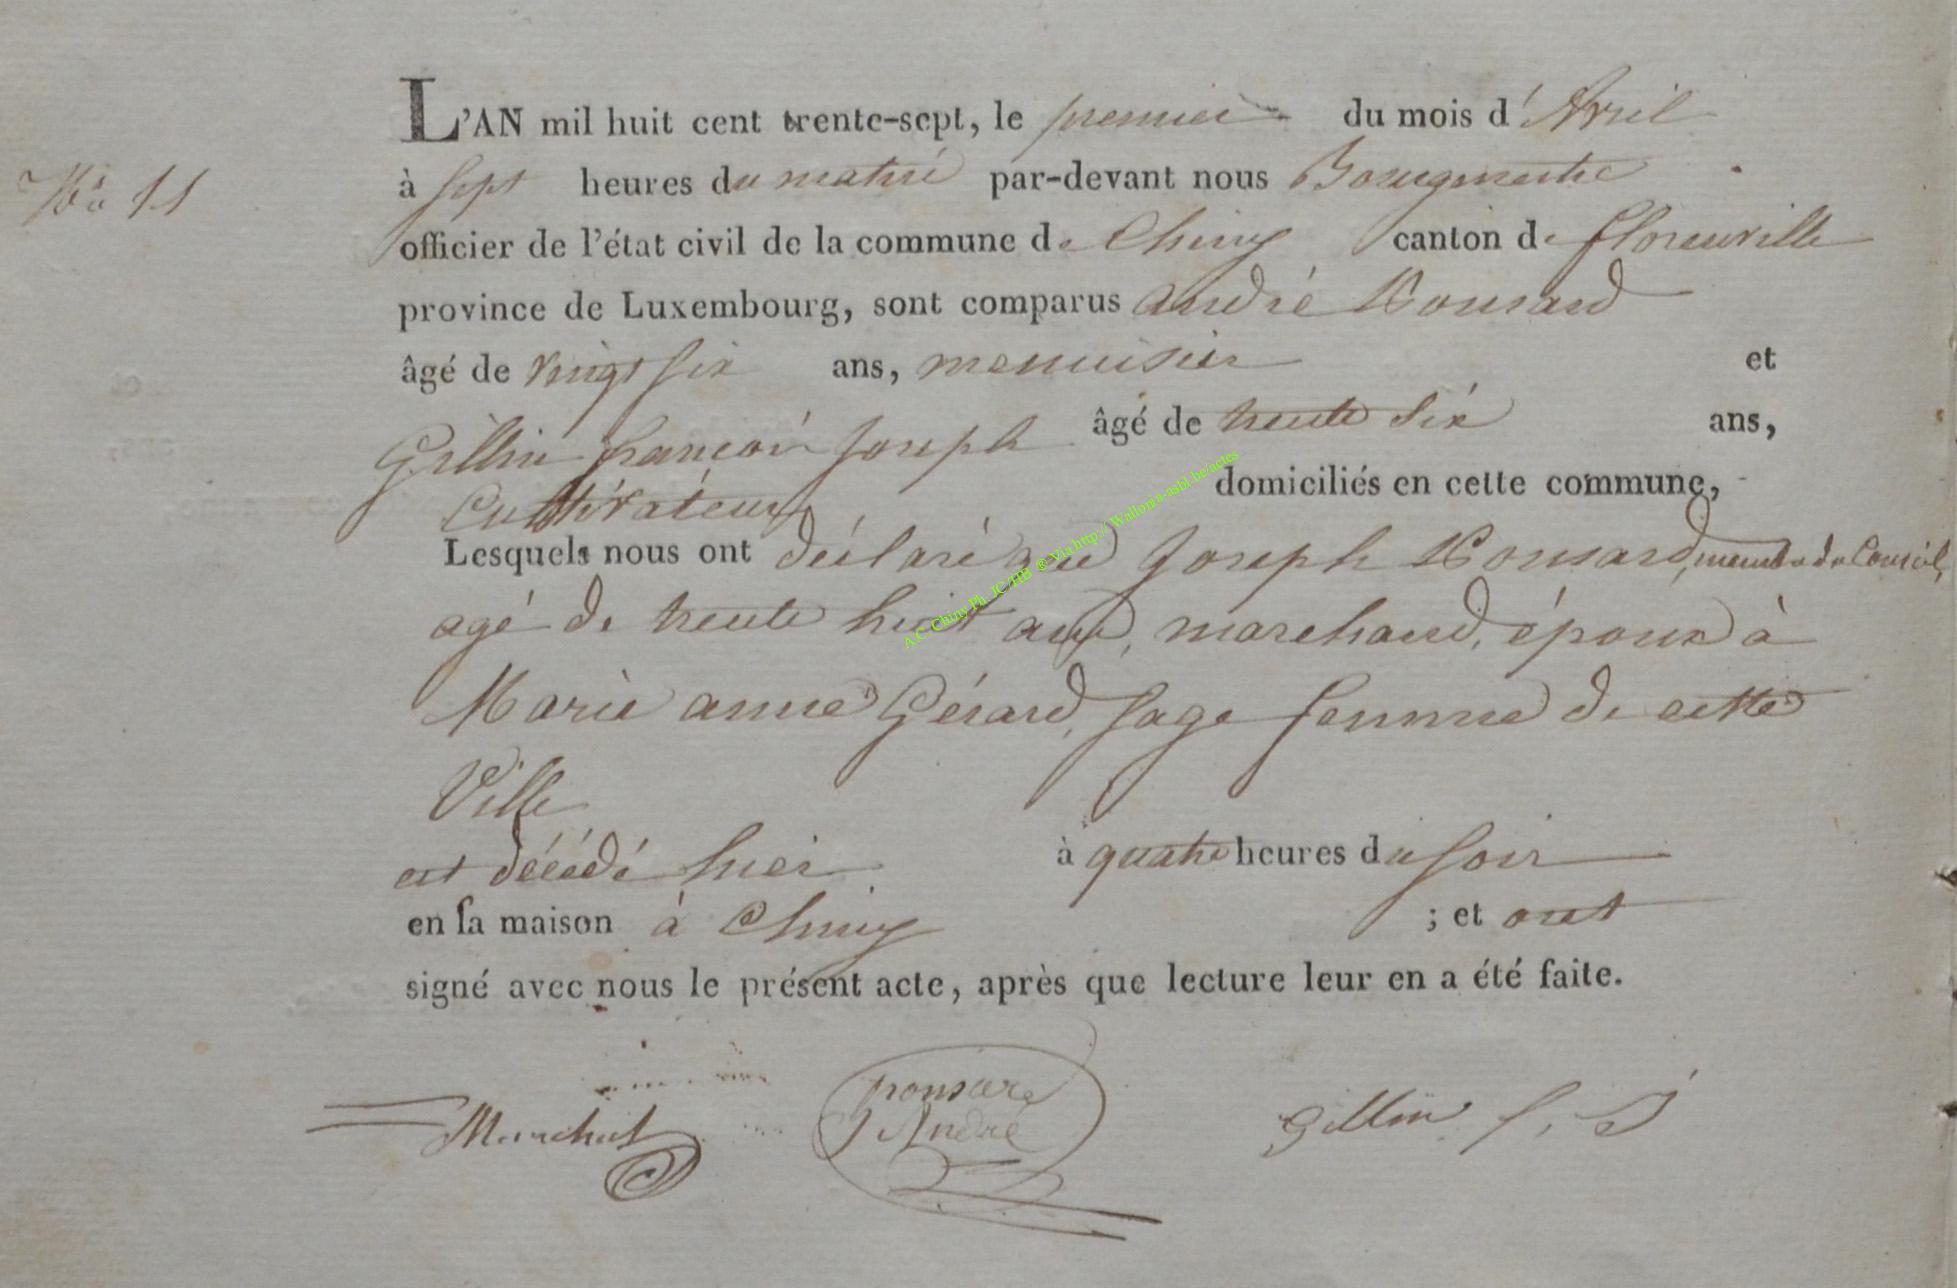 L'AN mil huit cent trente-sept, le premier du mois d'Avril
No 11
à sept heures du matin par-devant nous Bourgmestre
officier de l'état civil de la commune de Chiny canton de florenville
province de Luxembourg, sont comparus André Ponsard
âgé de vingt six ans, menuisier et
Gillin françois Joseph âgé de trente six ans,
Cultivateur domiciliés en cette commune,
Lesquels nous ont déclaré que Joseph Ponsard, membre du Conseil,
agé de trente huit ans, marchand, époux à
Marie anne Gérard, sage femme de cette
Ville
est décédé hier à quatre heures du soir
en sa maison à Chiny ; et ont
signé avec nous le présent acte, après que lecture leur en a été faite.
ponsard
André
Gillin f. J
A.C. Chiny Ph. JC/HB @ Via http://Wallonia-asbl.be/actes